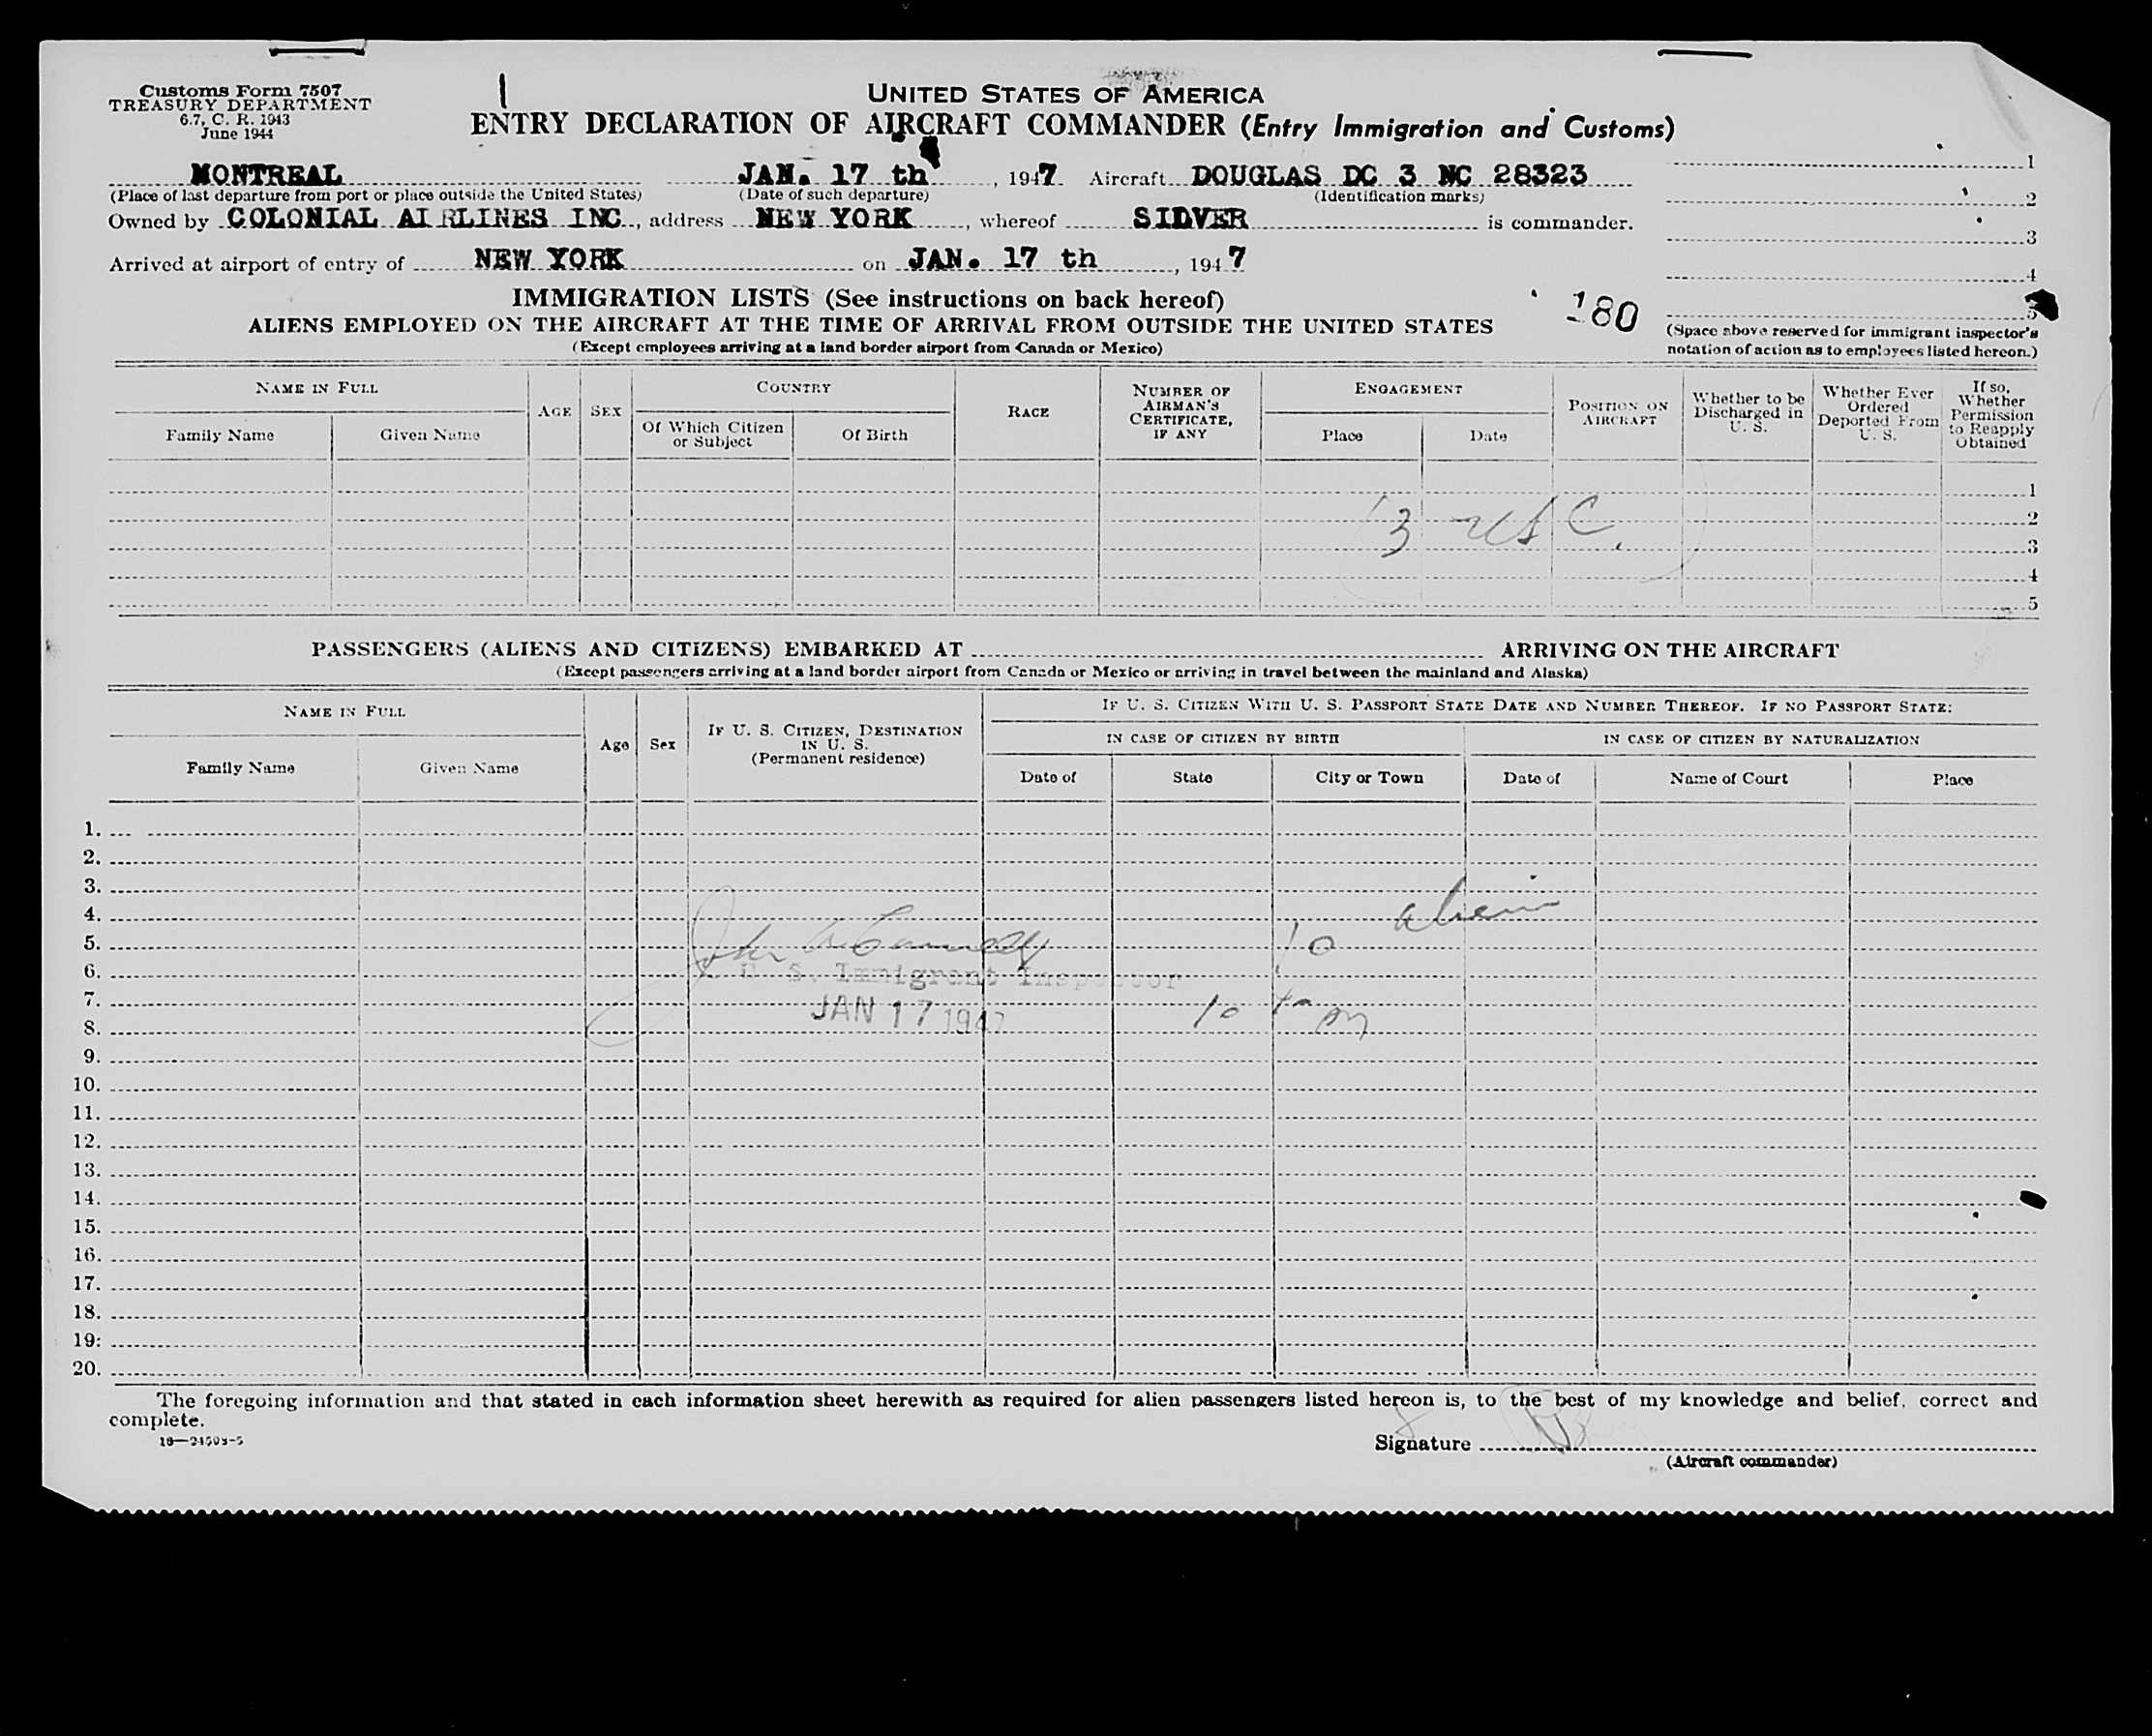 Customs Form 7507
TREASURY DEPARTMENT
6.7, C. R. 1943
June 1944
UNITED STATES OF AMERICA
ENTRY DECLARATION OF AIRCRAFT COMMANDER (Entry Immigration and Customs)
MONTREAL JAN. 17 th, 1947 Aircraft DOUGLAS DC 3 NC 28323
(Place of last departure from port or place outside the United States) (Date of such departure) (Identification marks)
Owned by COLONIAL AIRLINES INC, address NEW YORK, whereof SIDVER is commander.
Arrived at airport of entry of NEW YORK on JAN. 17 th, 1947
1
2
3
4
5
(Space above reserved for immigrant inspector's
notation of action as to employees listed hereon.)
IMMIGRATION LISTS (See instructions on back hereof)
180
ALIENS EMPLOYED ON THE AIRCRAFT AT THE TIME OF ARRIVAL FROM OUTSIDE THE UNITED STATES
(Except employees arriving at a land border airport from Canada or Mexico)
NAME IN FULL
Family Name Given Name
AGE SEX
COUNTRY
Of Which Citizen or Subject Of Birth
RACE
NUMBER OF AIRMAN'S CERTIFICATE, IF ANY
ENGAGEMENT
Place Date
POSITION ON AIRCRAFT
Whether to be Discharged in U. S.
Whether Ever Ordered Deported From U. S.
If so, Whether Permission to Reapply Obtained
1
2
3 USC.
3
4
5
PASSENGERS (ALIENS AND CITIZENS) EMBARKED AT ARRIVING ON THE AIRCRAFT
(Except passengers arriving at a land border airport from Canada or Mexico or arriving in travel between the mainland and Alaska)
NAME IN FULL
Family Name Given Name
Age Sex
IF U. S. CITIZEN, DESTINATION IN U. S.
(Permanent residence)
IF U. S. CITIZEN WITH U. S. PASSPORT STATE DATE AND NUMBER THEREOF. IF NO PASSPORT STATE:
IN CASE OF CITIZEN BY BIRTH IN CASE OF CITIZEN BY NATURALIZATION
Date of State City or Town Date of Name of Court Place
1.
2.
3.
4. aliens
5. John 10
6. U. S. Immigrant Inspector
7. JAN 17 1947 10
8.
9.
10.
11.
12.
13.
14.
15.
16.
17.
18.
19.
20.
The foregoing information and that stated in each information sheet herewith as required for alien passengers listed hereon is, to the best of my knowledge and belief, correct and
complete.
16—34503-5
Signature
(Aircraft commander)